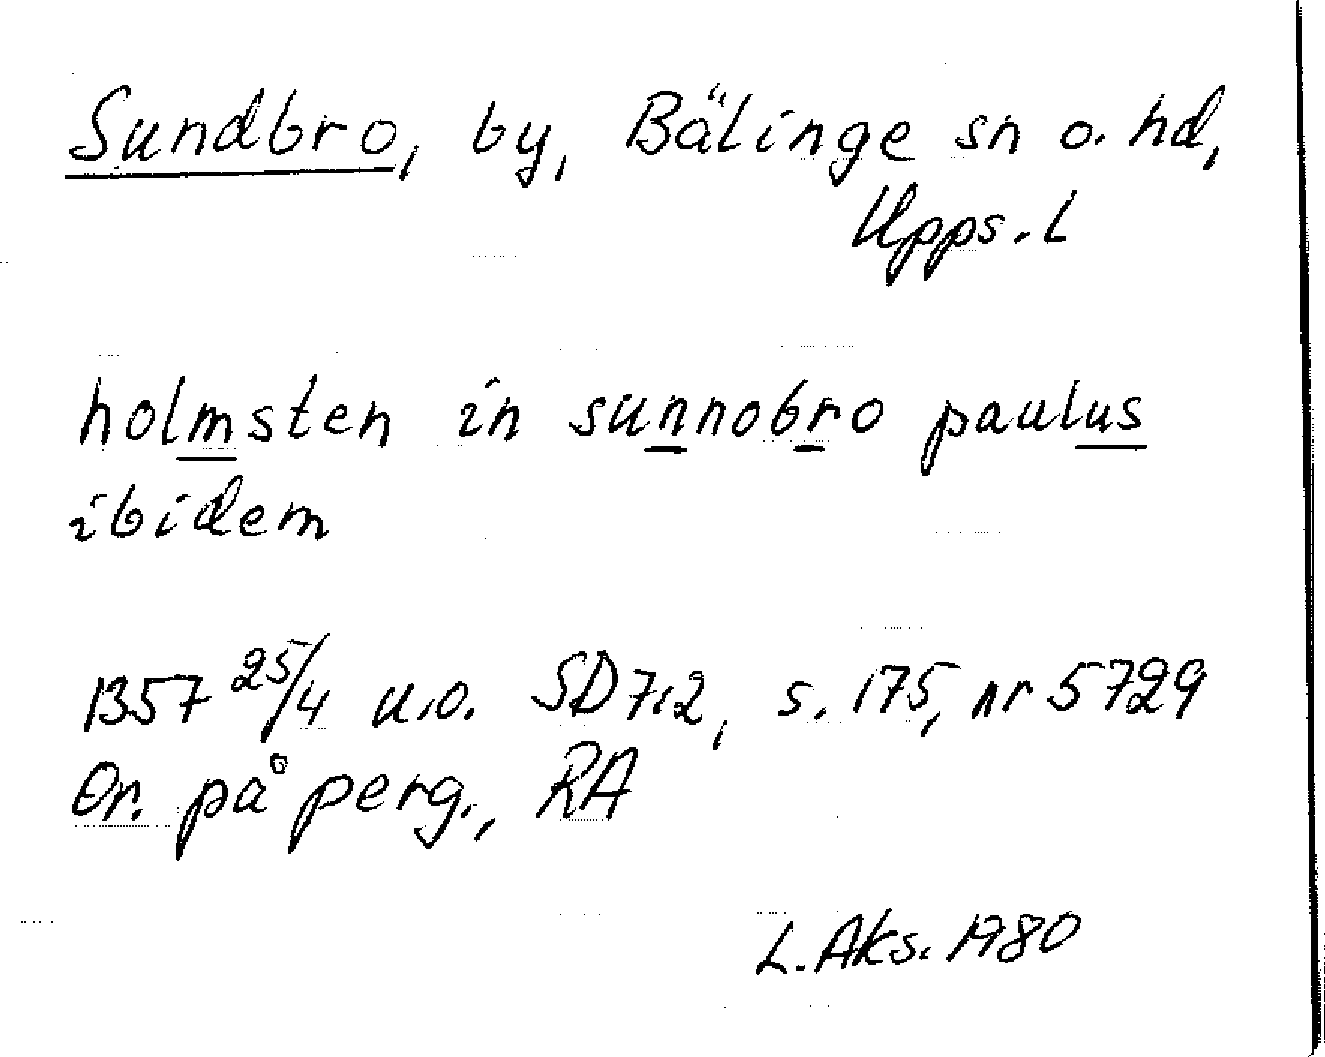 Sundbro, by, Bälinge sn o. hd,
Upps. l
holmsten in sunnobro paulus
ibidem
1357 25/4 u.o. SD 7:2, s. 175, nr 5729
Or. på perg., RA
L. Aks. 1980